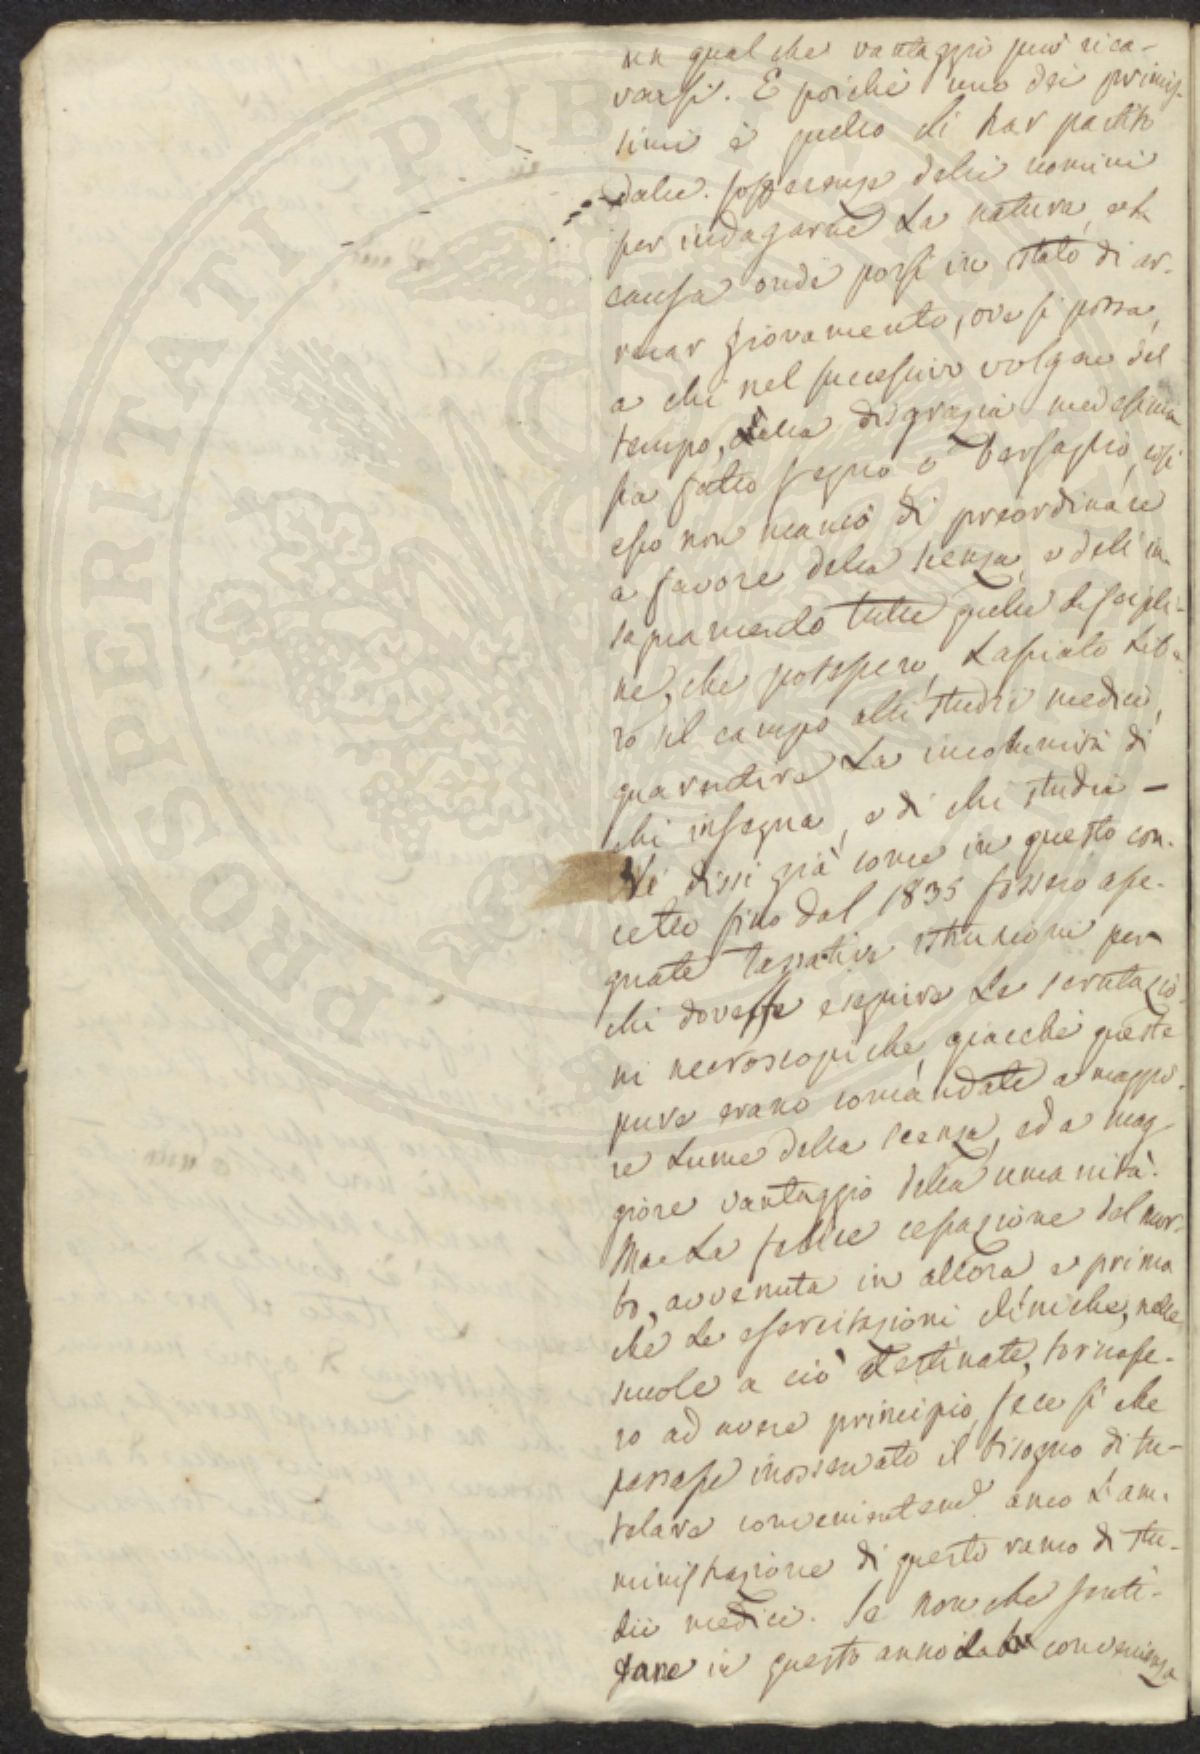 un qualche vantaggio può rica-
varsi. E poiché uno dei primis-
simi è quello di trar partito
dalle sofferenze delli uomini
per indagarne la natura, e la
causa onde porsi in stato di ar-
recar giovamento, ove si possa,
a chi nel successivo volgere del
tempo, della disgrazia medesima
sia fatto segno o bersaglio, così
esso non mancò di preordinare
a favore della scenza, e dell'in-
segnamendo tutte quelle discipli-
ne, che potessero, lasciato libe-
ro il campo alli studii medici,
guarentire la incolumità di
chi insegna, e di chi studia —
Vi dissi già come in questo con-
cetto fino dal 1835 fossero asse-
gnate tassative istruzioni per
chi dovesse eseguire le scrutazio-
ni necroscopiche, giacché queste
pure erano comandate a maggio-
re lume della scenza, ed a mag-
giore vantaggio della umanità.
Ma la felice cessazione del mor-
bo, avvenuta in allora e prima
che le esercitazioni cliniche, nelle
scuole a ciò destinate, tornasse-
ro ad avere principio, fece sì che
passasse inosservato il bisogno di tu-
telare convenientemᵉ anco l'am-
ministrazione di questo ramo di stu-
dii medici. Se non che senti-
tane in questo anno la convenienza
PROSPERITATI PUBLICAE